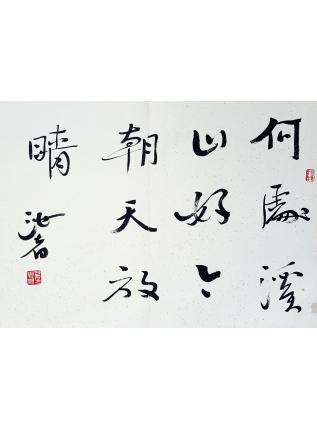 何處溪
山好今
朝天放
晴